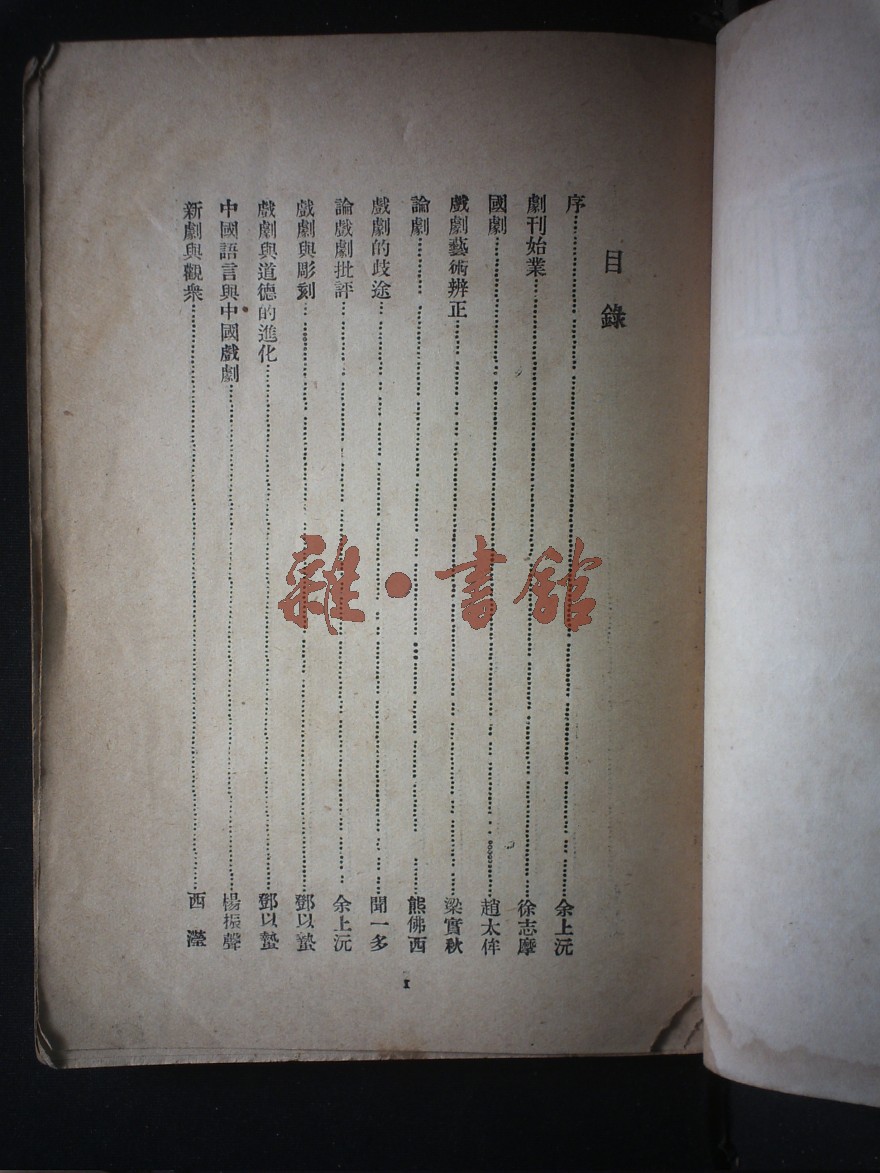 目錄
序……余上沅
劇刊始業……徐志摩
國劇……趙太侔
戲劇藝術辨正……梁實秋
論劇……熊佛西
戲劇的歧途……聞一多
論戲劇批評……余上沅
戲劇與彫刻……鄧以蟄
戲劇與道德的進化……鄧以蟄
中國語言與中國戲劇……楊振聲
新劇與觀衆……西瀅
1
雜·書館